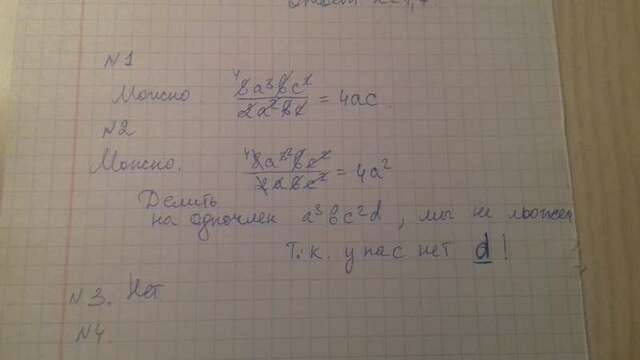 N1
Можно. 8a³bc²/2a²bc = 4ac.
N2
Можно. 8a³bc²/2abc² = 4a²
Делить
на одночлен a³bc²d, мы не можем
т.к. у нас нет d!
N3. Нет
N4.